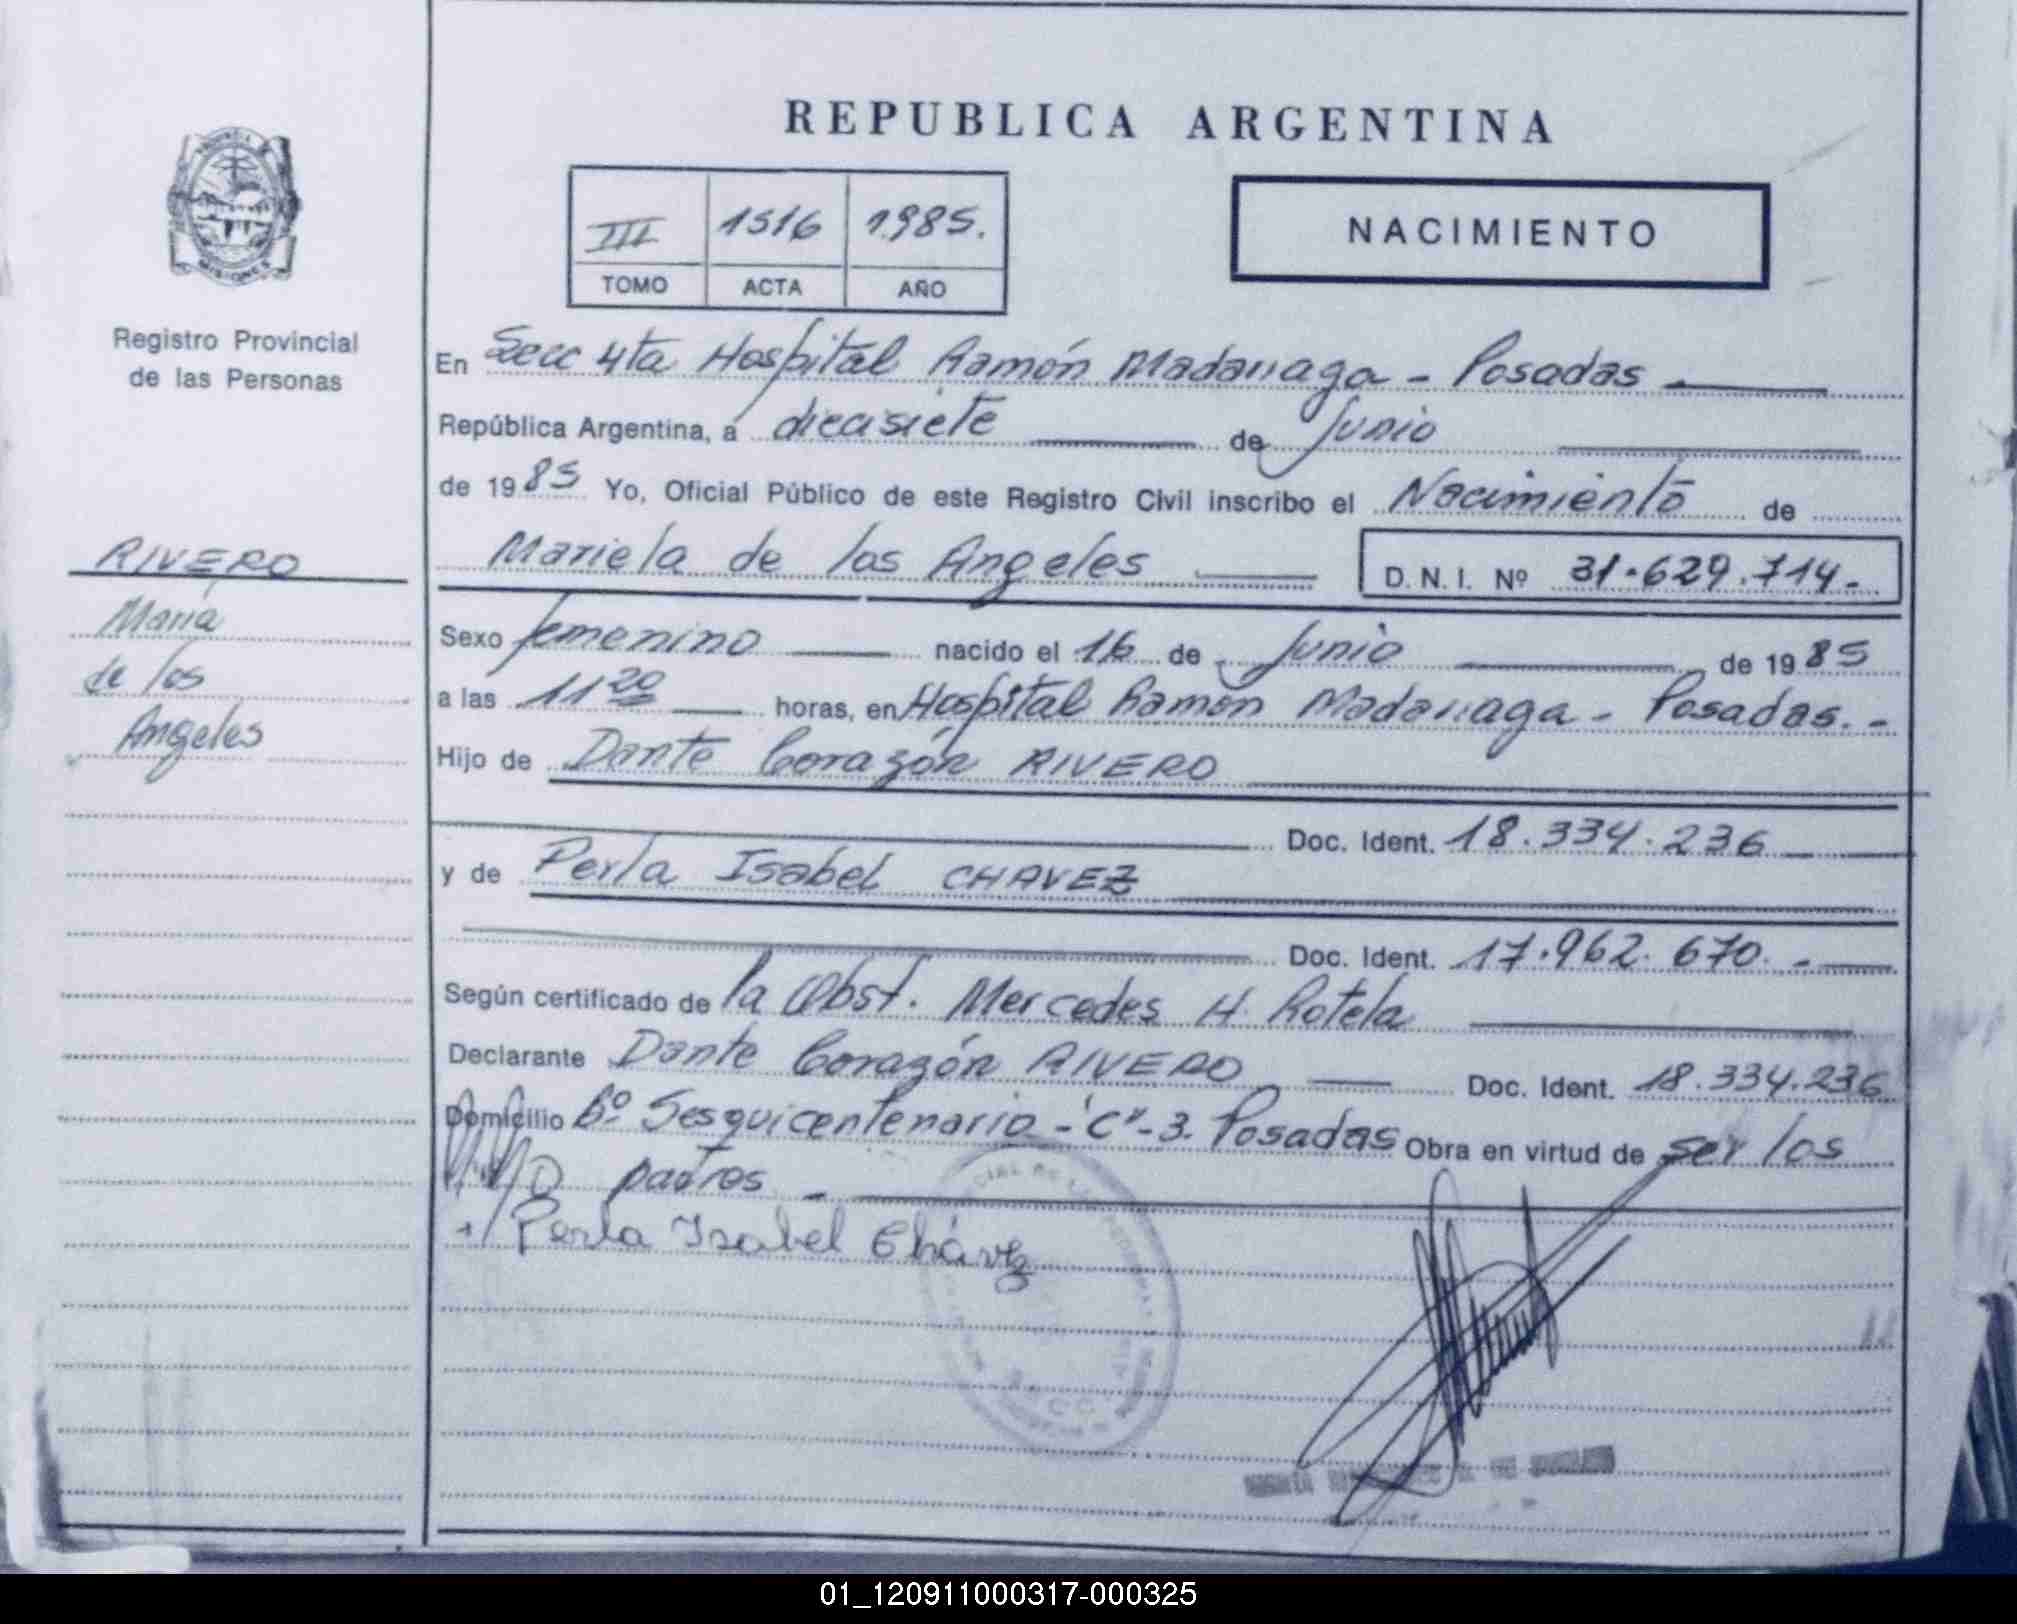 REPUBLICA ARGENTINA
III 1516 1985.
TOMO ACTA AÑO
NACIMIENTO
MISIONES
Registro Provincial
de las Personas
RIVERO
Maria
de los
Angeles
En Secc 4ta Hospital Ramón Madariaga - Posadas -
República Argentina, a diecisiete de Junio
de 1985 Yo, Oficial Público de este Registro Civil inscribo el Nacimiento de
Mariela de los Angeles D. N. I. Nº 31.629.714.-
Sexo femenino nacido el 16 de Junio de 1985
a las 11 20 horas, en Hospital Ramón Madariaga - Posadas. -
Hijo de Dante Corazón RIVERO
Doc. Ident. 18.334.236
y de Perla Isabel CHAVEZ
Doc. Ident. 17.962.670. -
Según certificado de la Obst. Mercedes H. Rotela
Declarante Dante Corazón RIVERO Doc. Ident. 18.334.236
Domicilio Bº Sesquicentenario - "C" - 3. Posadas Obra en virtud de ser los
padres -
Perla Isabel Chávez
01_120911000317-000325